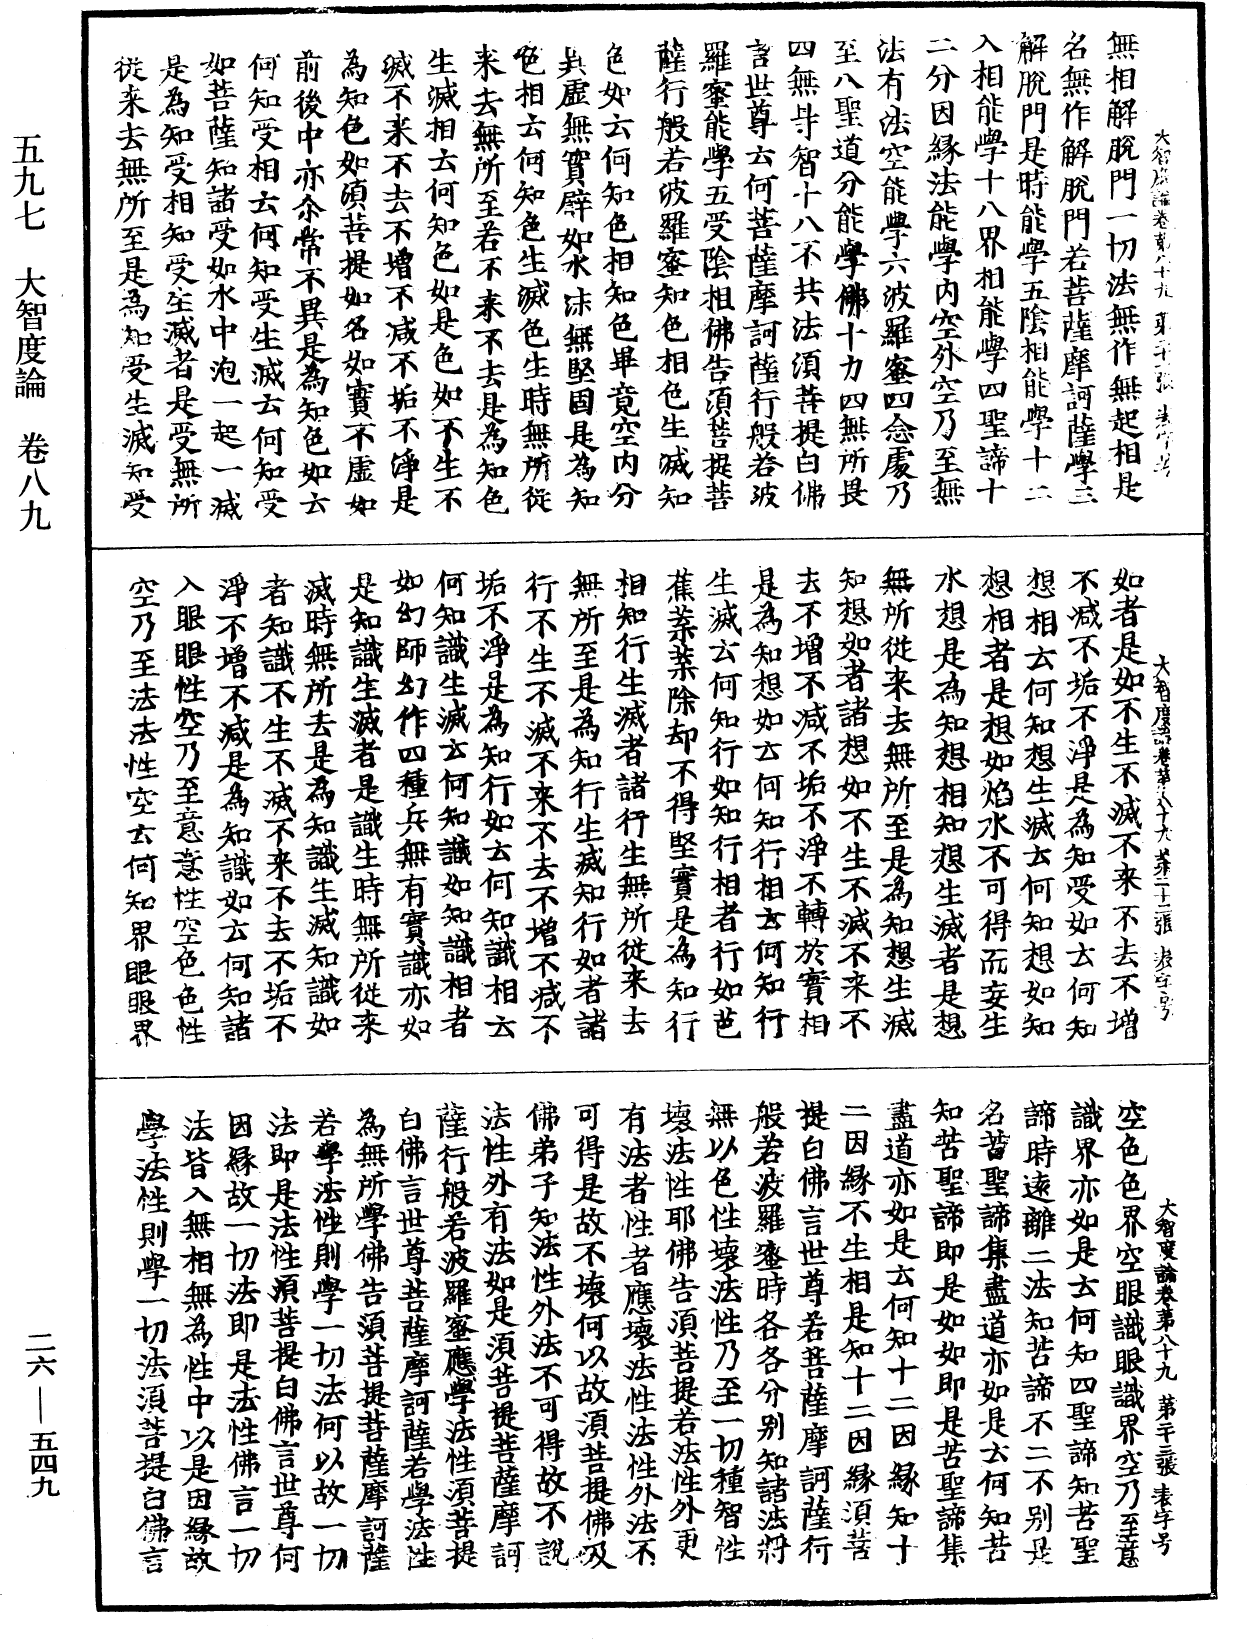 五九七　大智度論　卷八九
無相解脫門一切法無作無起相是
名無作解脫門若菩薩摩訶薩學三
解脫門是時能學五陰相能學十二
入相能學十八界相能學四聖諦十
二分因緣法能學內空外空乃至無
法有法空能學六波羅蜜四念處乃
至八聖道分能學佛十力四無所畏
四無㝵智十八不共法須菩提白佛
言世尊云何菩薩摩訶薩行般若波
羅蜜能學五受陰相佛告須菩提菩
薩行般若波羅蜜知色相色生滅知
色如云何知色相知色畢竟空內分
異虛無實譬如水沫無堅固是為知
色相云何知色生滅色生時無所從
来去無所至若不来不去是為知色
生滅相云何知色如是色如不生不
滅不来不去不增不減不垢不淨是
為知色如須菩提如名如實不虛如
前後中亦尒常不異是為知色如云
何知受相云何知受生滅云何知受
如菩薩知諸受如水中泡一起一滅
是為知受相知受生滅者是受無所
從来去無所至是為知受生滅知受
大智度論卷第八十九　第二十二張　裘字号
如者是如不生不滅不来不去不增
不減不垢不淨是為知受如云何知
想相云何知想生滅云何知想如知
想相者是想如焰水不可得而妄生
水想是為知想相知想生滅者是想
無所從来去無所至是為知想生滅
知想如者諸想如不生不滅不来不
去不增不減不垢不淨不轉於實相
是為知想如云何知行相云何知行
生滅云何知行如知行相者行如芭
蕉葉葉除却不得堅實是為知行
相知行生滅者諸行生無所從来去
無所至是為知行生滅知行如者諸
行不生不滅不来不去不增不減不
垢不淨是為知行如云何知識相云
何知識生滅云何知識如知識相者
如幻師幻作四種兵無有實識亦如
是知識生滅者是識生時無所從来
滅時無所去是為知識生滅知識如
者知識不生不滅不来不去不垢不
淨不增不減是為知識如云何知諸
入眼眼性空乃至意意性空色色性
空乃至法法性空云何知界眼眼界
大智度論卷第八十九　第二十三張　裘字号
空色色界空眼識眼識界空乃至意
識界亦如是云何知四聖諦知苦聖
諦時遠離二法知苦諦不二不別是
名苦聖諦集盡道亦如是云何知苦
知苦聖諦即是如如即是苦聖諦集
盡道亦如是云何知十二因緣知十
二因緣不生相是知十二因緣須菩
提白佛言世尊若菩薩摩訶薩行
般若波羅蜜時各各分別知諸法將
無以色性壞法性乃至一切種智性
壞法性耶佛告須菩提若法性外更
有法者性者應壞法性法性外法不
可得是故不壞何以故須菩提佛及
佛弟子知法性外法不可得故不說
法性外有法如是須菩提菩薩摩訶
薩行般若波羅蜜應學法性須菩提
白佛言世尊菩薩摩訶薩若學法性
為無所學佛告須菩提菩薩摩訶薩
若學法性則學一切法何以故一切
法即是法性須菩提白佛言世尊何
因緣故一切法即是法性佛言一切
法皆入無相無為性中以是因緣故
學法性則學一切法須菩提白佛言
二六—五四九